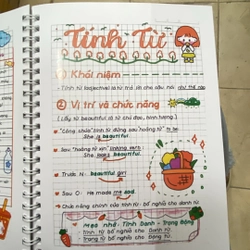 Tính Từ
① Khái niệm
- Tính từ (adjective) là từ trả lời cho câu hỏi như thế nào
② Vị trí và chức năng
( Lấy từ beautiful là từ chủ đạo, hình tượng)
"Công chúa" tính từ đứng sau "hoàng tử" to be
She is beautiful.
Sau "hoàng tử" linking verb
She looks beautiful.
Trước N: beautiful girl
Sau O: He made me sad.
Chức năng chính của tính từ: bổ nghĩa cho danh từ
Mẹo nhớ: Tính Danh - Trạng Động
Tính từ bổ nghĩa cho Danh từ
Trạng từ bổ nghĩa cho Động từ